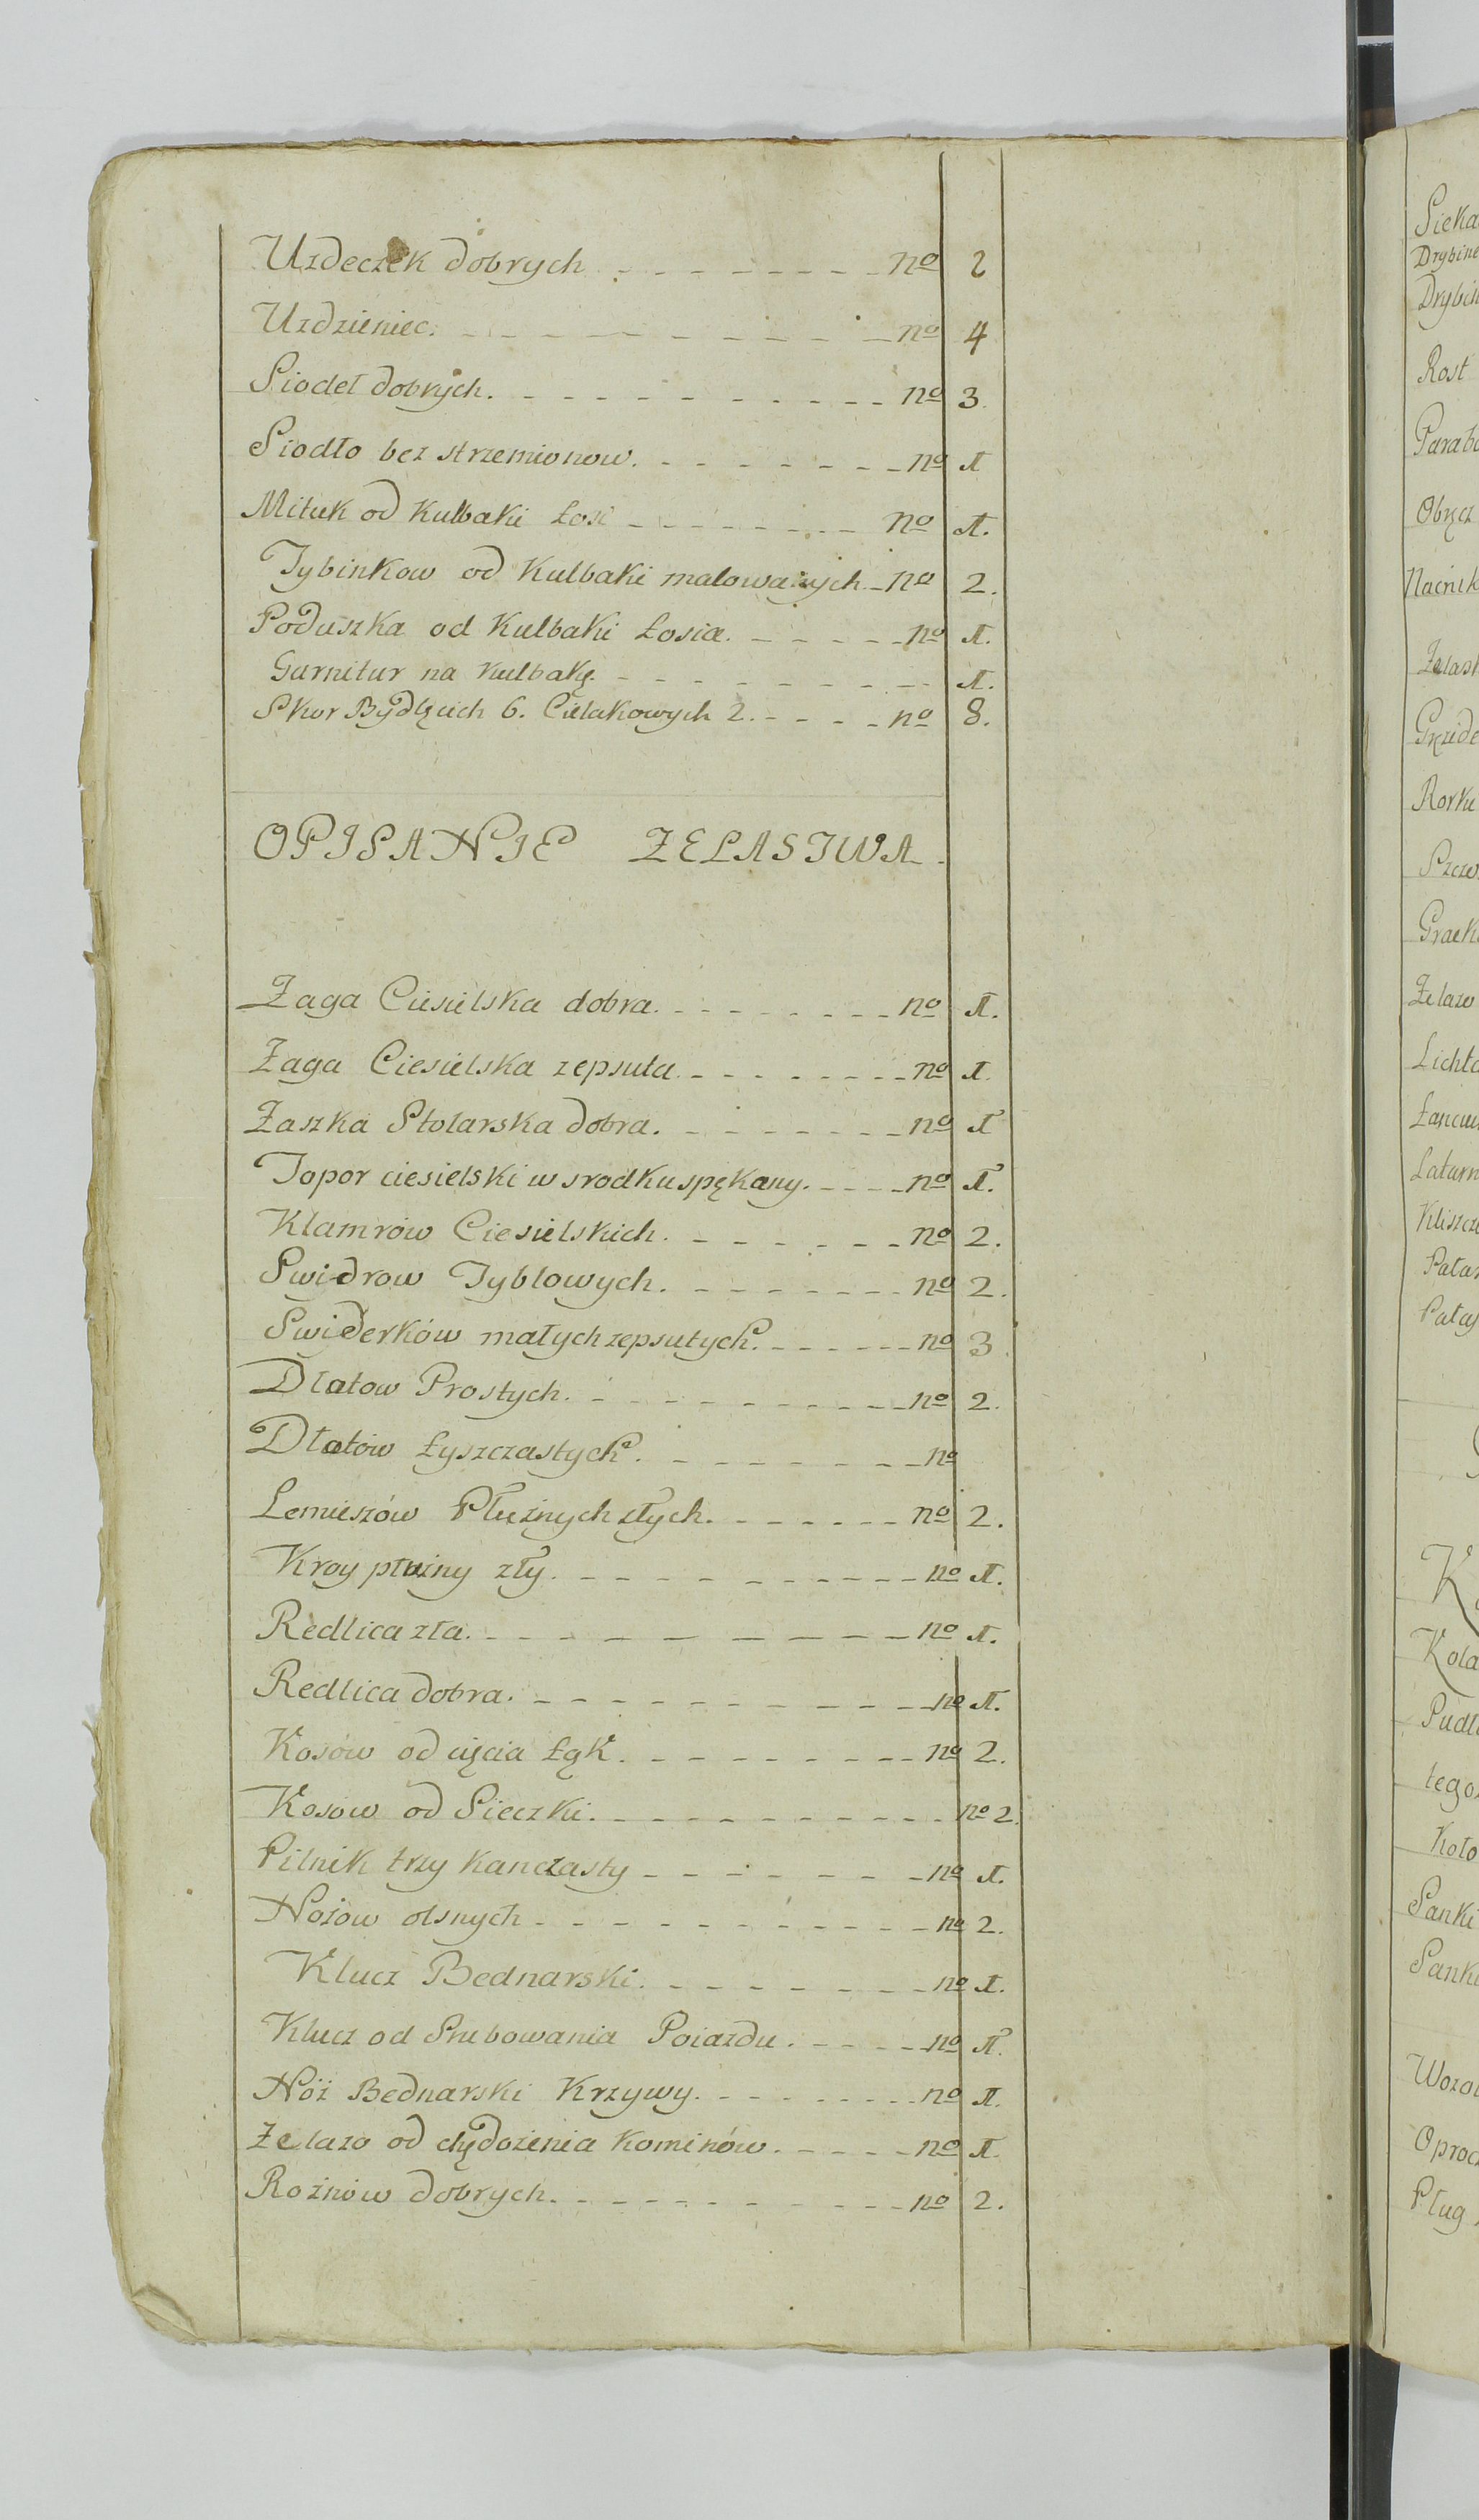 Uzdeczek dobrych - - - - - - - - no 2
Uzdzieniec. - - - - - - - - no 4
Siodeł dobrych. - - - - - - - - no 3.
Siodło bez strzemionow. - - - - - - no 1
Mituk od Kulbaki Łosi - - - - - - no 1.
Tybinkow od Kulbaki malowanych - no 2.
Poduszka od Kulbaki Łosia. - - - - - no 1.
Garnitur na Kulbakę. - - - - - - - - 1.
Skor Bydlęcich 6. Cielakowych 2. - - - - no 8.
OPISANIE ZELASTWA.
Żaga Ciesielska dobra. - - - - - - - no 1.
Żaga Ciesielska zepsuta. - - - - - - - no 1.
Żaszka Stolarska dobra. - - - - - - - no 1
Topor ciesielski w srodku spękany. - - - - no 1.
Klamrów Ciesielskich. - - - - - - no 2.
Swidrow Tyblowych. - - - - - - - no 2.
Swiderków małych zepsutych. - - - - - - no 3.
Dłatow Prostych. - - - - - - - - no 2.
Dłatów Łyszczastych. - - - - - - - no
Lemieszów Płużnych złych. - - - - - - no 2.
Kroy płużny zły. - - - - - - - - - no 1.
Redlica zła. - - - - - - - - - no 1.
Redlica dobra. - - - - - - - - - no 1.
Kosów od cięcia Łąk. - - - - - - - - no 2.
Kosow od Sieczki. - - - - - - - - - no 2.
Pilnik trzy kanczasty - - - - - - - no 1.
Nożow olsnych - - - - - - - - - no 2.
Klucz Bednarski. - - - - - - - no 1.
Klucz od Srubowania Poiazdu. - - - - no 1.
Nóż Bednarski Krzywy. - - - - - - - no 1.
Żelazo od chędożenia Kominów. - - - - - no 1.
Rożnów dobrych. - - - - - - - - - no 2.
Rost
Obręcz
Żelazo
Sanki
Pług